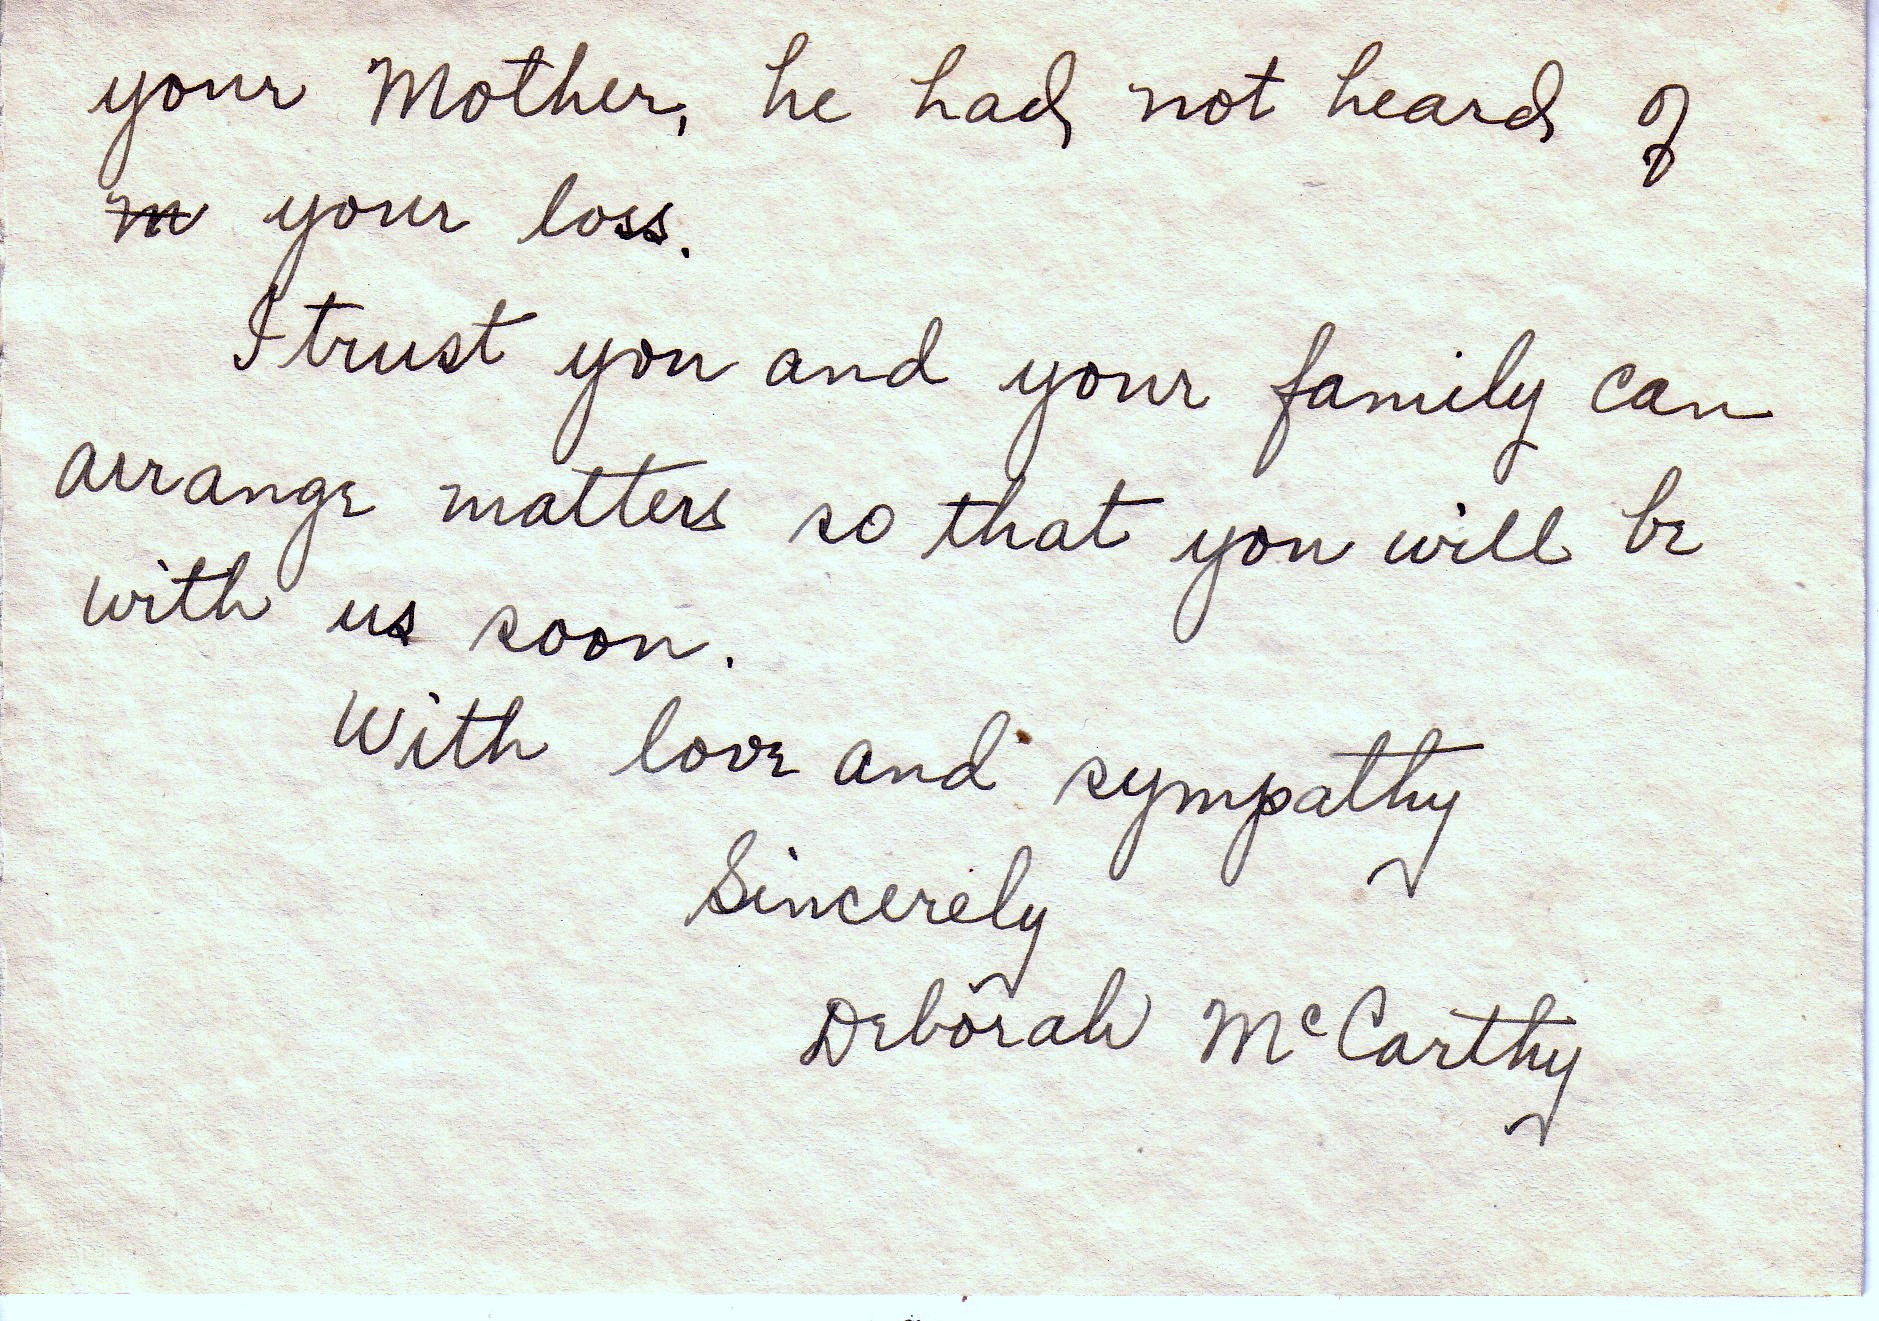 your Mother, he had not heard of
m your loss.
I trust you and your family can
arrange matters so that you will be
with us soon.
With love and sympathy
Sincerely
Deborah McCarthy